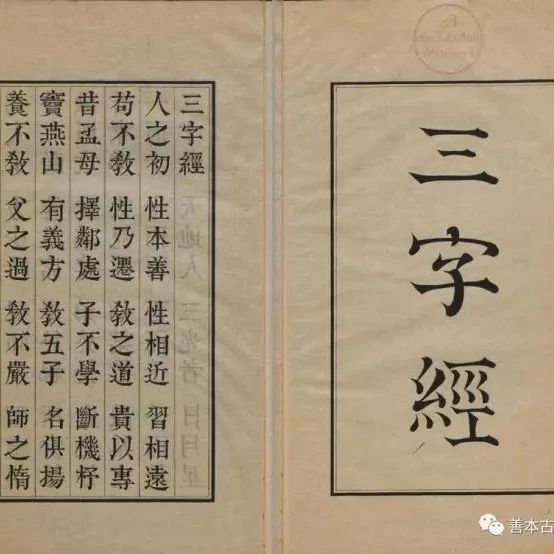 三字經
三字經
人之初 性本善 性相近 習相遠
苟不敎 性乃遷 敎之道 貴以專
昔孟母 擇鄰處 子不學 斷機杼
竇燕山 有義方 敎五子 名俱揚
養不敎 父之過 敎不嚴 師之惰
善本古